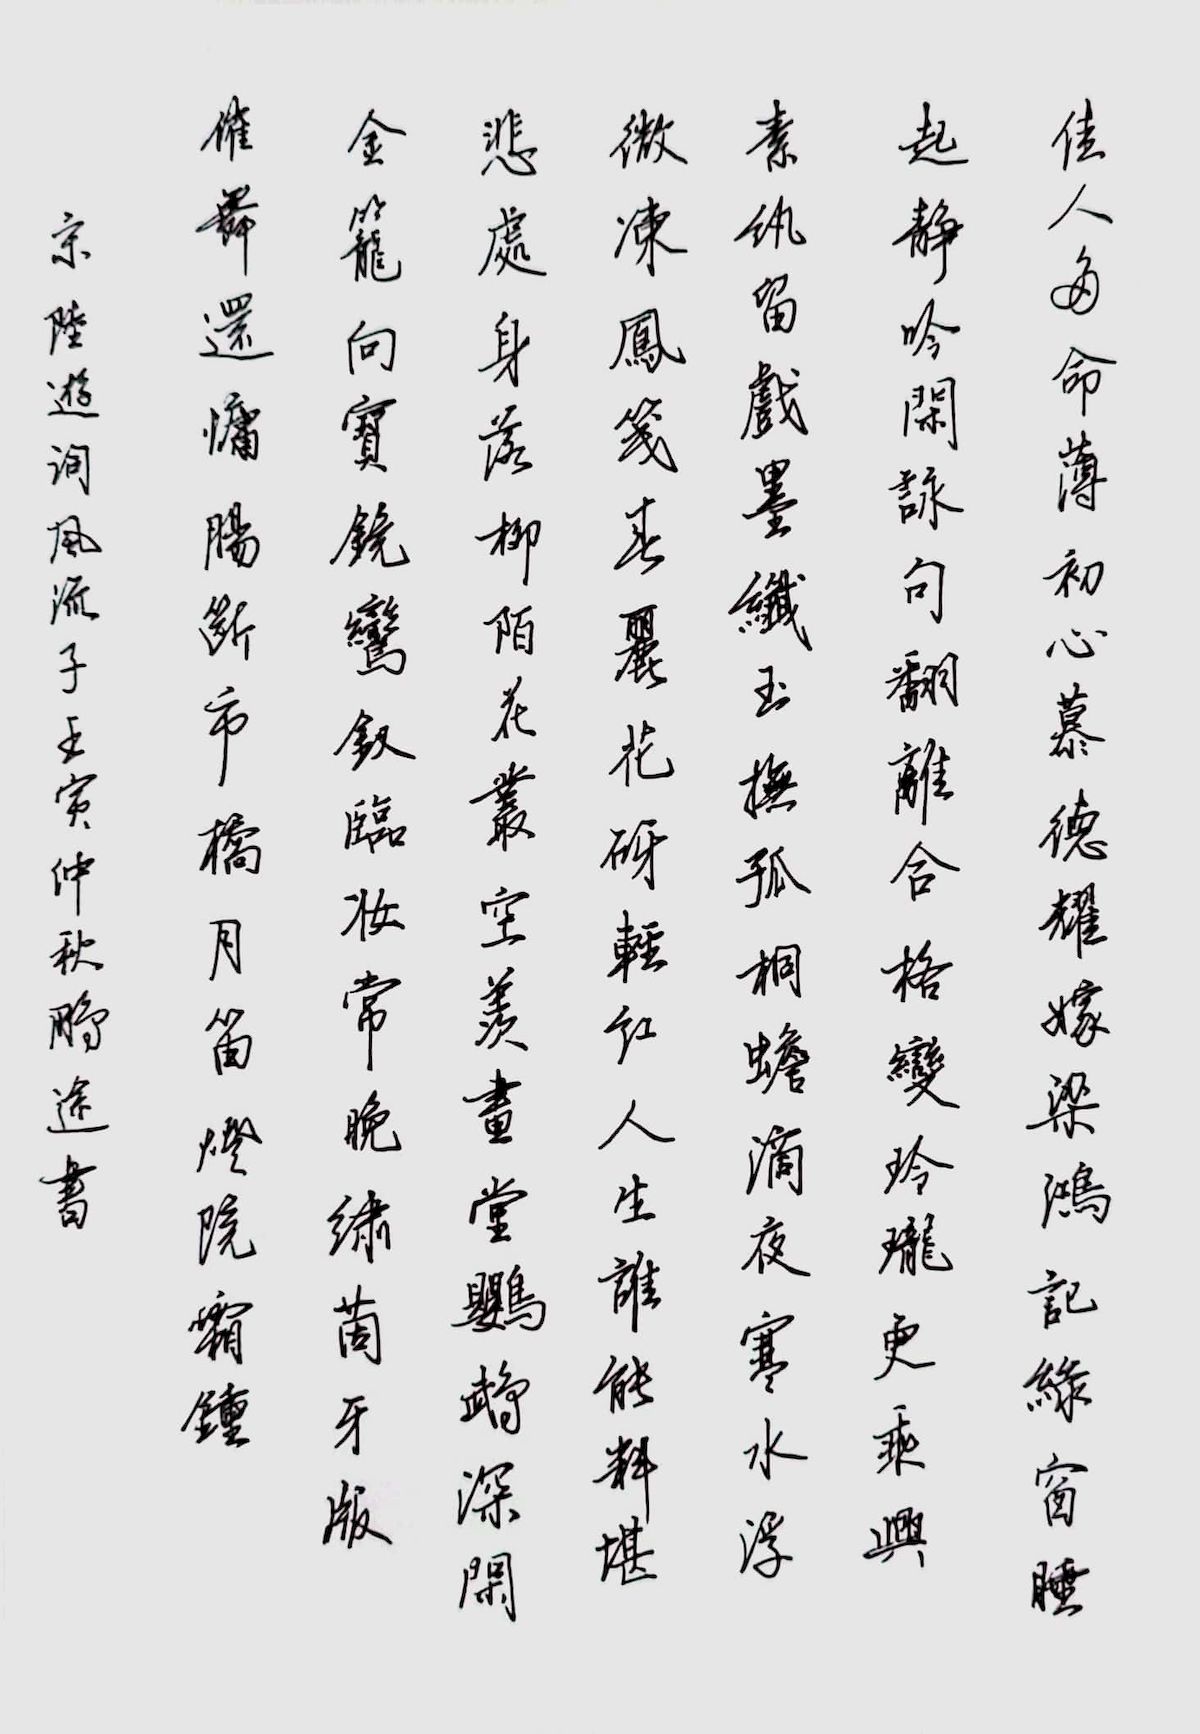 佳人多命薄初心慕德耀嫁梁鴻記綠窗睡
起靜吟閑詠句翻離合格變玲瓏更乘興
素紈留戲墨纖玉撫孤桐蟾滴夜寒水浮
微凍鳳箋春麗花砑輕紅人生誰能料堪
悲處身落柳陌花叢空羨畫堂鸚鵡深閑
金籠向寶鏡鸞釵臨妆常晚繡茵牙版
催舞還慵腸斷市橋月笛燈院霜鍾
宋陸遊詞風流子壬寅仲秋鵬途書